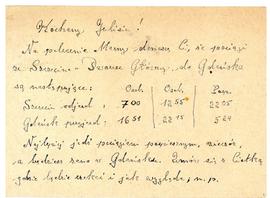 Kochany Zbisiu!
Na polecenie Mamy donoszę Ci, że pociągi
ze Szczecina - Dworzec Główny do Gdańska
są następujące:
Osob. Osob. Posp.
Szczecin odjazd 7 00 12 55 22 05
Gdańsk przyjazd 16 51 22 15 5 24
Najlepiej jedź pociągiem pospiesznym, wieczór,
a będziesz rano w Gdańsku. Umów się z Ciotką
gdzie będzie czekać i jak wygląda, n.p.